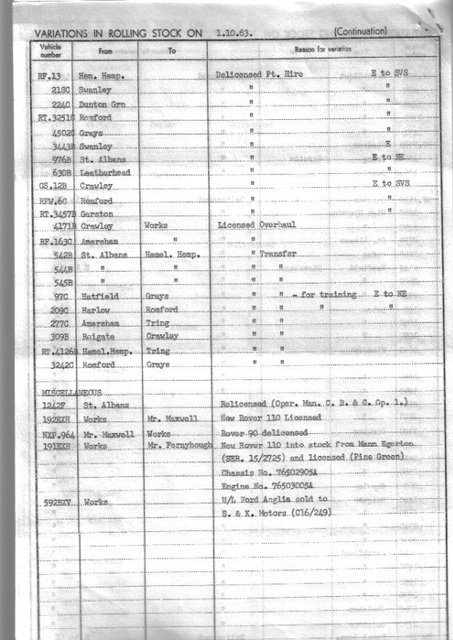 VARIATIONS IN ROLLING STOCK ON 1.10.63. (Continuation)
Vehicle number From To Reason for variation
RF.13 Hem. Hemp. Delicensed Pt. Hire E to SVS
218C Swanley " "
224C Dunton Grn "
RT.3251C Romford " "
4502C Grays "
3443B Swanley " E
976B St. Albans " E to NE
630B Leatherhead " "
GS.12B Crawley " E to SVS
RFW.6C Romford " "
RT.3457B Garston " "
4171B Crawley Works Licensed Overhaul
RF.163C Amersham " " "
542B St. Albans Hemel. Hemp. " Transfer
544B " " " "
545B " " " "
97C Hatfield Grays " " - for training E to NE
209C Harlow Romford " " " "
277C Amersham Tring " "
309B Reigate Crawley " "
RT.4126B Hemel.Hemp. Tring " "
3242C Romford Grays " "
MISCELLANEOUS
1242F St. Albans Relicensed (Oper. Man. C. B. & C. Gp. 1.)
192EXH Works Mr. Maxwell New Rover 110 Licensed
NXP.964 Mr. Maxwell Works Rover 90 delicensed
191EXH Works Mr. Fernyhough New Rover 110 into stock from Mann Egerton
(SER. 15/2725) and licensed (Pine Green)
Chassis No. 76502905A
Engine No. 76503005A
592BXV Works U/L Ford Anglia sold to
S. & K. Motors (C16/249)